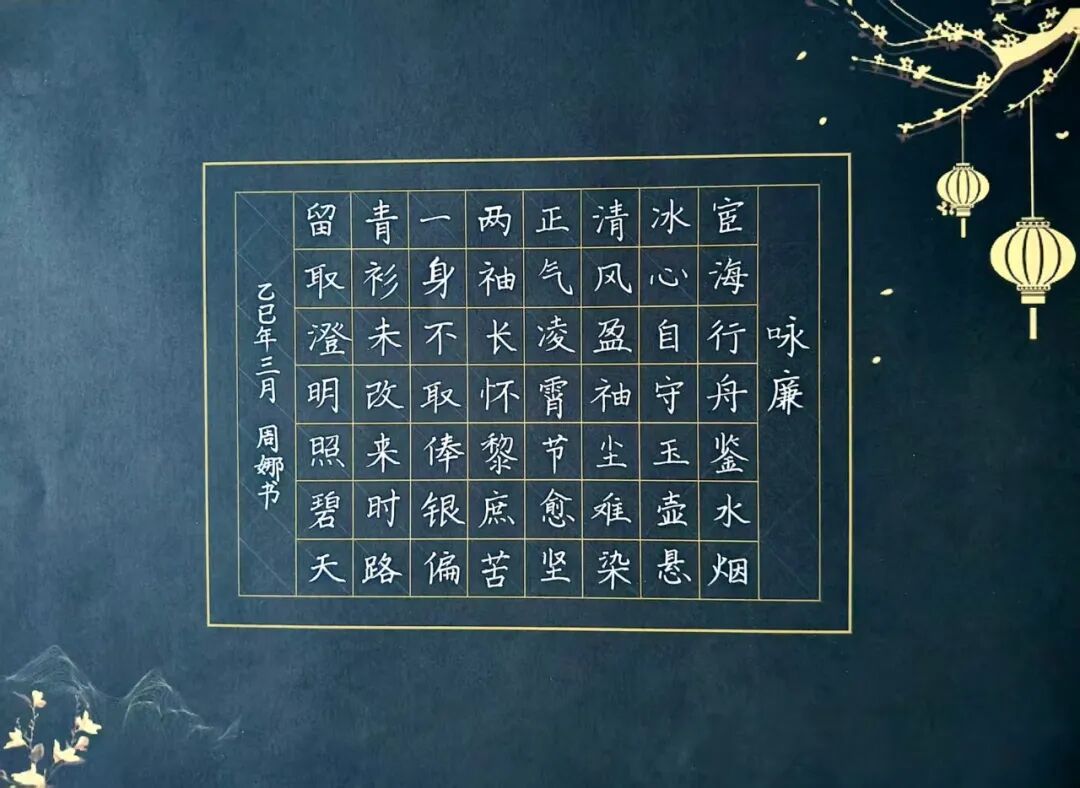 咏廉
宦海行舟鉴水烟
冰心自守玉壶悬
清风盈袖尘难染
正气凌霄节愈坚
两袖长怀黎庶苦
一身不取俸银偏
青衫未改来时路
留取澄明照碧天
乙巳年三月 周娜书